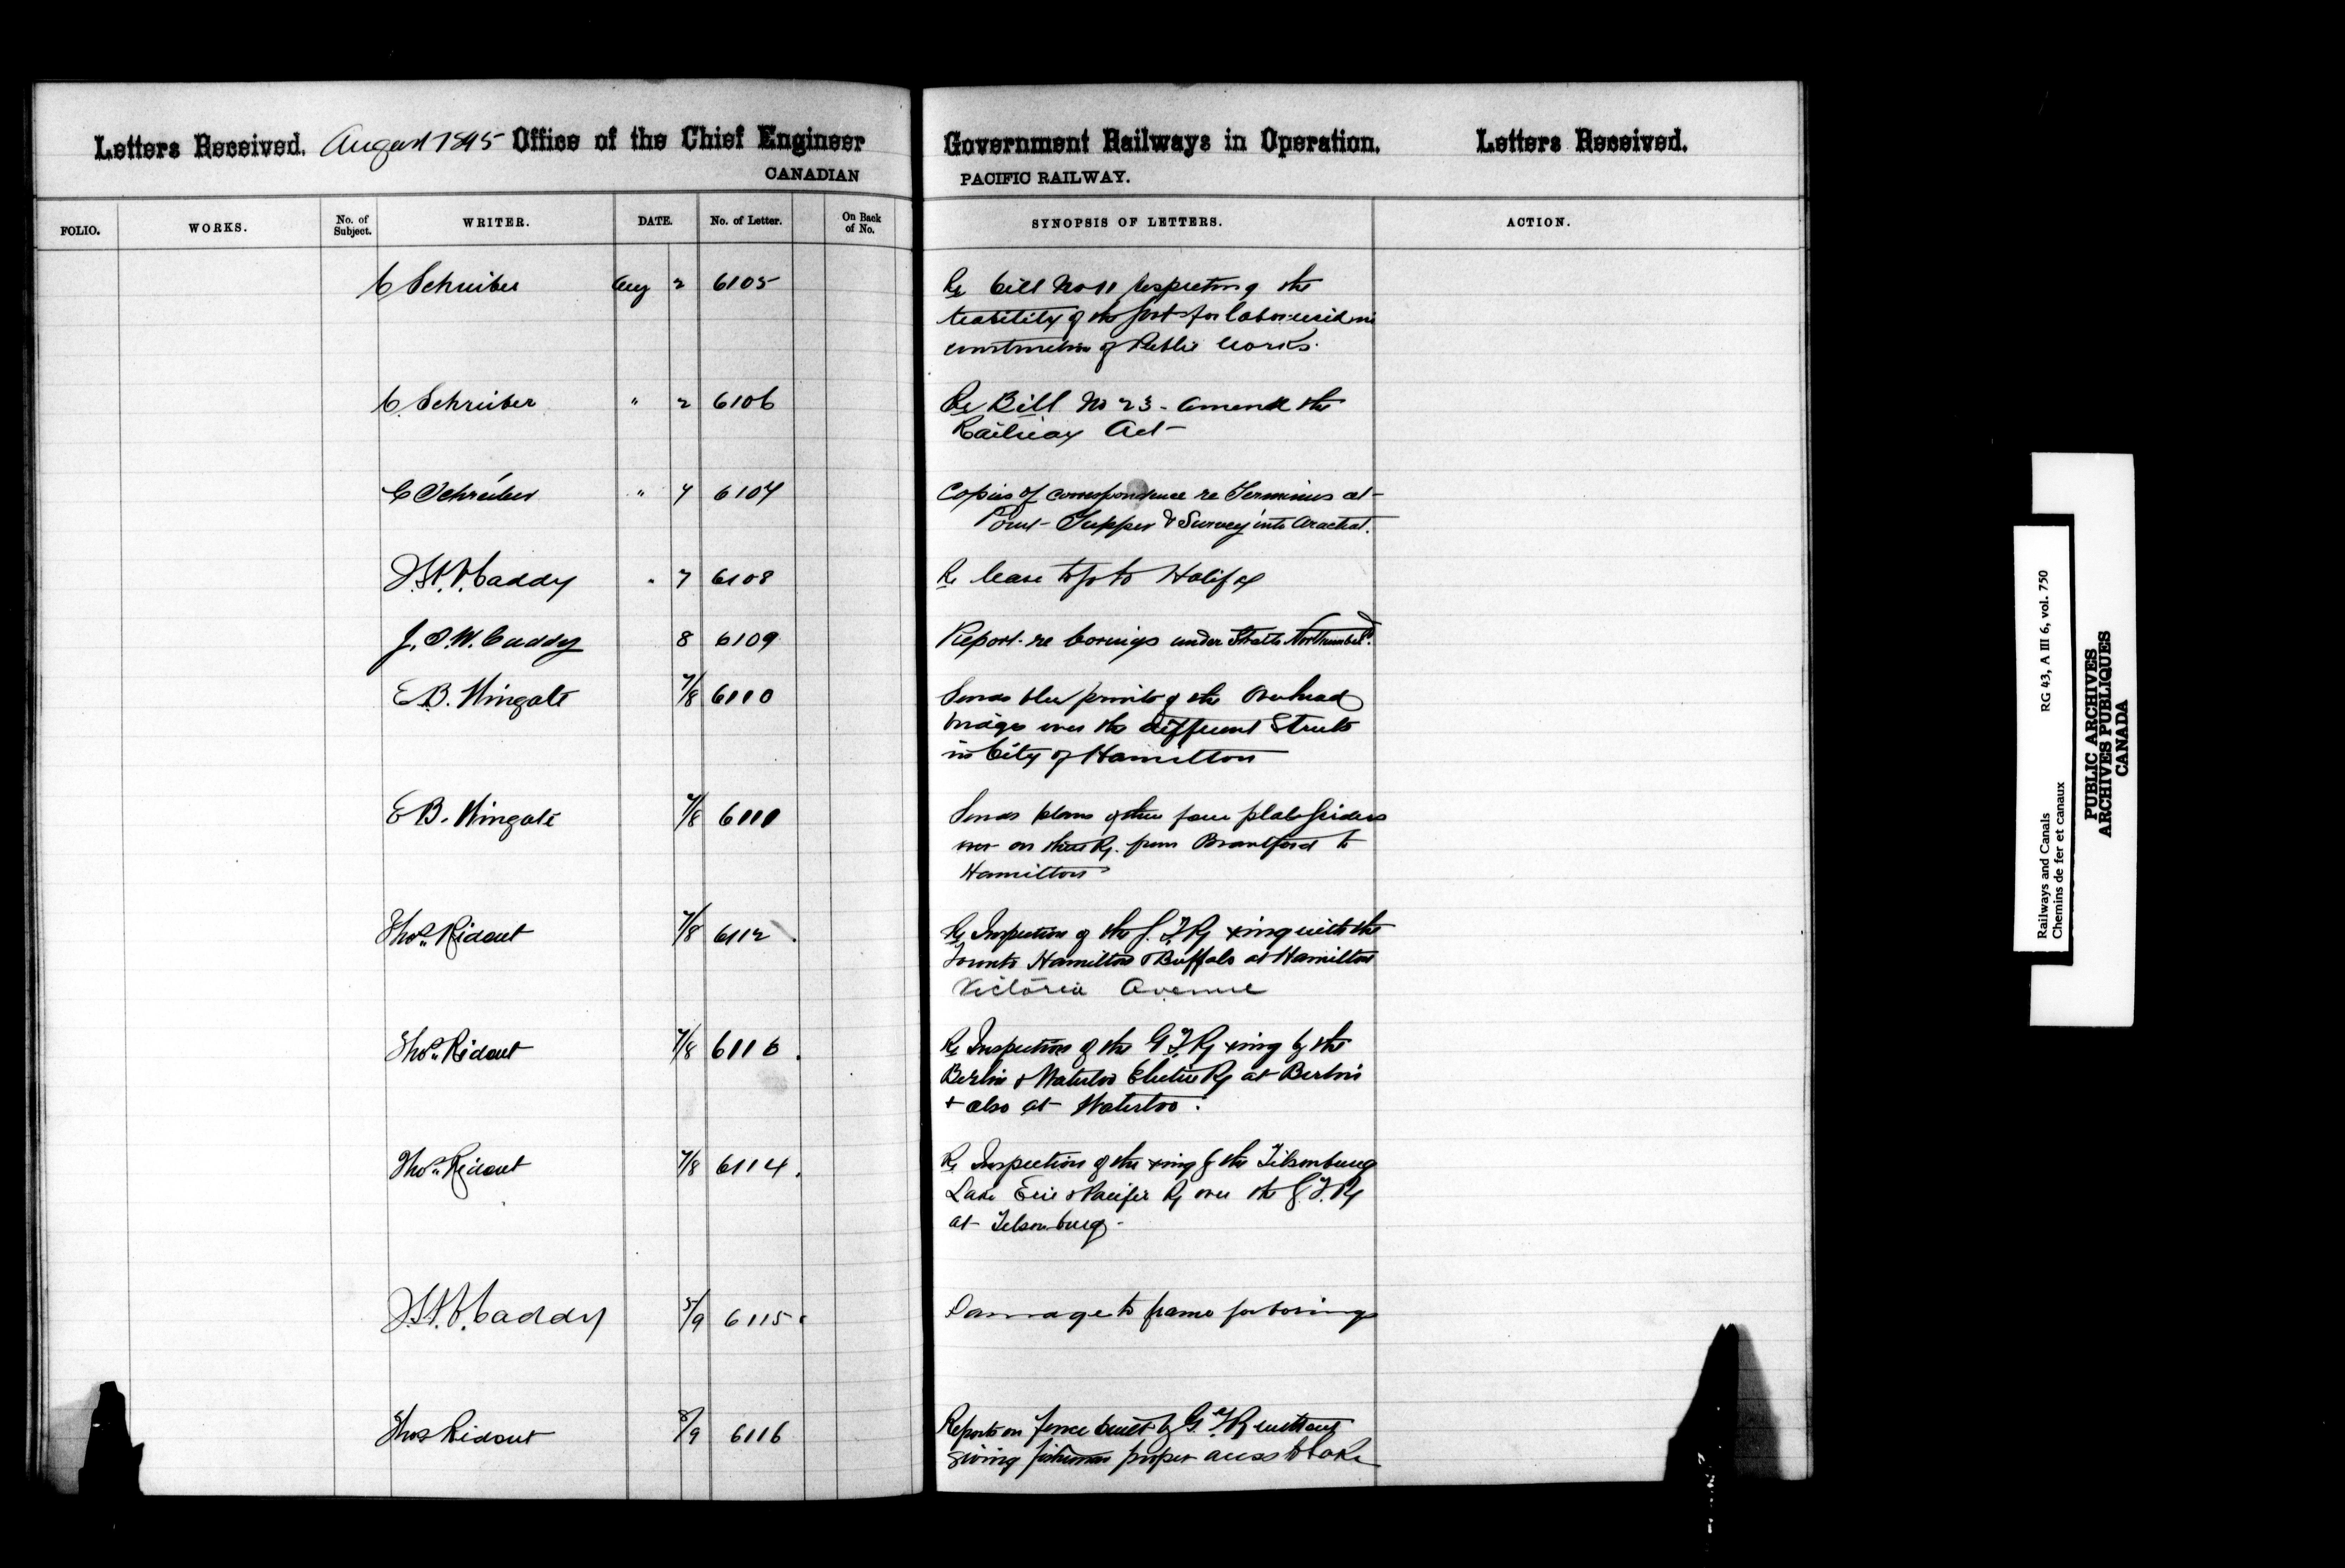 Letters Received. August 1895 Office of the Chief Engineer
CANADIAN
Government Railways in Operation. Letters Received.
PACIFIC RAILWAY.
FOLIO. WORKS. No. of Subject. WRITER. DATE. No. of Letter. On Back of No.
SYNOPSIS OF LETTERS. ACTION.
C Schreiber Aug 2 6105 Re bill No 11 respecting the
liability of the for labor used in
construction of Public Works.
C. Schreiber " 2 6106 Re Bill No 23 - amend the
Railway Act
C Schreiber " 7 6107 Copies of correspondence re Terminus at
Point Tupper & Survey into Arachat.
J.S.W. Caddy " 7 6108 Re leave to go to Halifax
J.S.W. Caddy 8 6109 Report re borings under Straits Northumbld.
E.B. Wingate 7/8 6110 Sends blue prints of the Overhead
bridges over the different Streets
in City of Hamilton
E B. Wingate 7/8 6111 Sends plans of the four plate Girders
on their Ry. from Brantford to
Hamilton
Thos. Ridout 7/8 6112 . Re Inspection of the G.T.Ry xing with the
Toronto Hamilton & Buffalo at Hamilton
Victoria Avenue
Thos. Ridout 7/8 6113 . Re Inspection of the G.T.Ry xing by the
Berlin & Waterloo Electric Ry at Berlin
+ also at Waterloo.
Thos. Ridout 7/8 6114. Re Inspection of the xing of the Tilsonburg
Lake Erie & Pacific Ry over the G.T.Ry
at Tilsonburg -
J.S.W. Caddy 5/9 6115. Damage to frame for borings
Thos Ridout 8/9 6116 Reports on fence built by G.T.Ry without
giving fishermen proper access to Lake
Railways and Canals RG 43, A III 6, vol. 750
Chemins de fer et canaux
PUBLIC ARCHIVES
ARCHIVES PUBLIQUES
CANADA